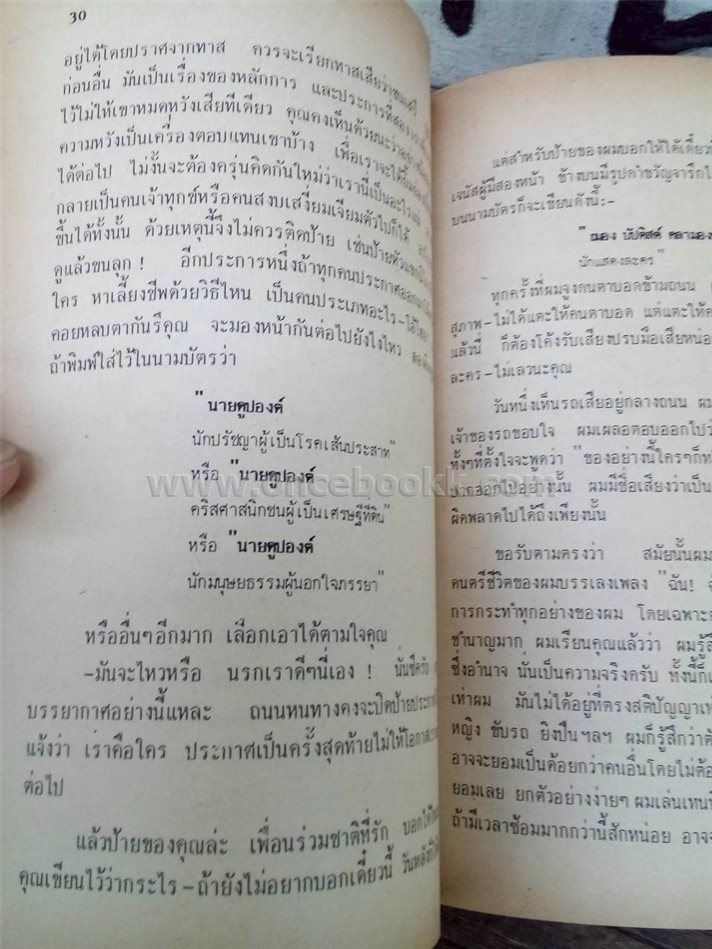 30
อยู่ได้โดยปราศจากทาส ควรจะเรียกทาสเสียว่าชนเสรี
ก่อนอื่น มันเป็นเรื่องของหลักการ และประการที่สอง
ไว้ไม่ให้เขาหมดหวังเสียทีเดียว คุณคงเห็นด้วยนะว่า
ความหวังเป็นเครื่องตอบแทนเขาบ้าง เพื่อเราจะได้
ได้ต่อไป ไม่งั้นจะต้องครุ่นคิดกันใหม่ว่าเรานี้เป็นอะไร
กลายเป็นคนเจ้าทุกข์หรือคนสงบเสงี่ยมเจียมตัวไปก็ได้
ขึ้นได้ทั้งนั้น ด้วยเหตุนี้จึงไม่ควรติดป้าย เช่นป้าย
ดูแล้วขนลุก ! อีกประการหนึ่งถ้าทุกคนประกาศออกมา
ใคร หาเลี้ยงชีพด้วยวิธีไหน เป็นคนประเภทอะไร-
คอยหลบตากันรึคุณ จะมองหน้ากันต่อไปยังไงไหว
ถ้าพิมพ์ใส่ไว้ในนามบัตรว่า
"นายดูปองต์
นักปรัชญาผู้เป็นโรคเส้นประสาท"
หรือ "นายดูปองต์
คริสศาสนิกชนผู้เป็นเศรษฐีที่ดิน"
หรือ "นายดูปองต์
นักมนุษยธรรมผู้นอกใจภรรยา"
หรืออื่นๆอีกมาก เลือกเอาได้ตามใจคุณ
-มันจะไหวหรือ นรกเราดีๆนี่เอง !
บรรยากาศอย่างนี้แหละ ถนนหนทางคงจะปิดป้ายประกาศ
แจ้งว่า เราคือใคร ประกาศเป็นครั้งสุดท้ายไม่ให้โอกาส
ต่อไป
แล้วป้ายของคุณล่ะ เพื่อนร่วมชาติที่รัก บอกได้ไหม
คุณเขียนไว้ว่ากระไร-ถ้ายังไม่อยากบอกเดี๋ยวนี้ วันหลังก็ได้
แต่สำหรับป้ายของผมบอกให้ได้เดี๋ยว
เจนัสผู้มีสองหน้า ข้างบนมีรูปคำขวัญจารึก
บนนามบัตรก็จะเขียนดังนี้:-
"ฌอง บัปติสต์ คลามอง
นักแสดงละคร"
ทุกครั้งที่ผมจูงคนตาบอดข้ามถนน
สุภาพ-ไม่ได้แตะให้คนตาบอด แต่แตะให้
แล้วนี่ ก็ต้องโค้งรับเสียงปรบมือเสียหน่อย
ละคร-ไม่เลวนะคุณ
วันหนึ่งเห็นรถเสียอยู่กลางถนน
เจ้าของรถขอบใจ ผมเผลอตอบออกไปว่า
ทั้งๆที่ตั้งใจจะพูดว่า "ของอย่างนี้ใครๆก็
ออกไปอย่างนั้น ผมมีชื่อเสียงว่าเป็น
ผิดพลาดไปได้ถึงเพียงนั้น
ขอรับตามตรงว่า สมัยนั้นผม
ดนตรีชีวิตของผมบรรเลงเพลง "ฉัน!
การกระทำทุกอย่างของผม โดยเฉพาะ
ชำนาญมาก ผมเรียนคุณแล้วว่า ผมรู้สึก
ซึ่งอำนาจ นั่นเป็นความจริงครับ ทั้งนี้ก็
เท่าผม มันไม่ได้อยู่ที่ตรงสติปัญญา
หญิง ขับรถ ยิงปืน ฯลฯ ผมก็รู้สึกว่า
อาจจะยอมเป็นด้อยกว่าคนอื่นโดยไม่ต้อง
ยอมเลย ยกตัวอย่างง่ายๆ ผมเล่นเทนนิส
ถ้ามีเวลาซ้อมมากกว่านี้สักหน่อย อาจ